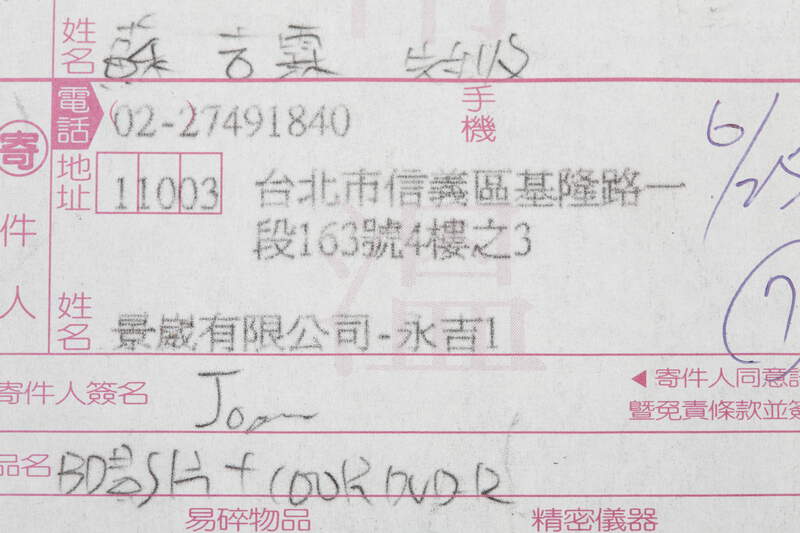 姓名 蘇 言霖
電話 02-27491840 手機
6/25
寄件人
地址 11003 台北市信義區基隆路一
段163號4樓之3
溫
姓名 景崴有限公司-永吉1
7
寄件人簽名 Joan
◀寄件人同意
暨免責條款並簽
品名 BD DVD R
易碎物品 精密儀器